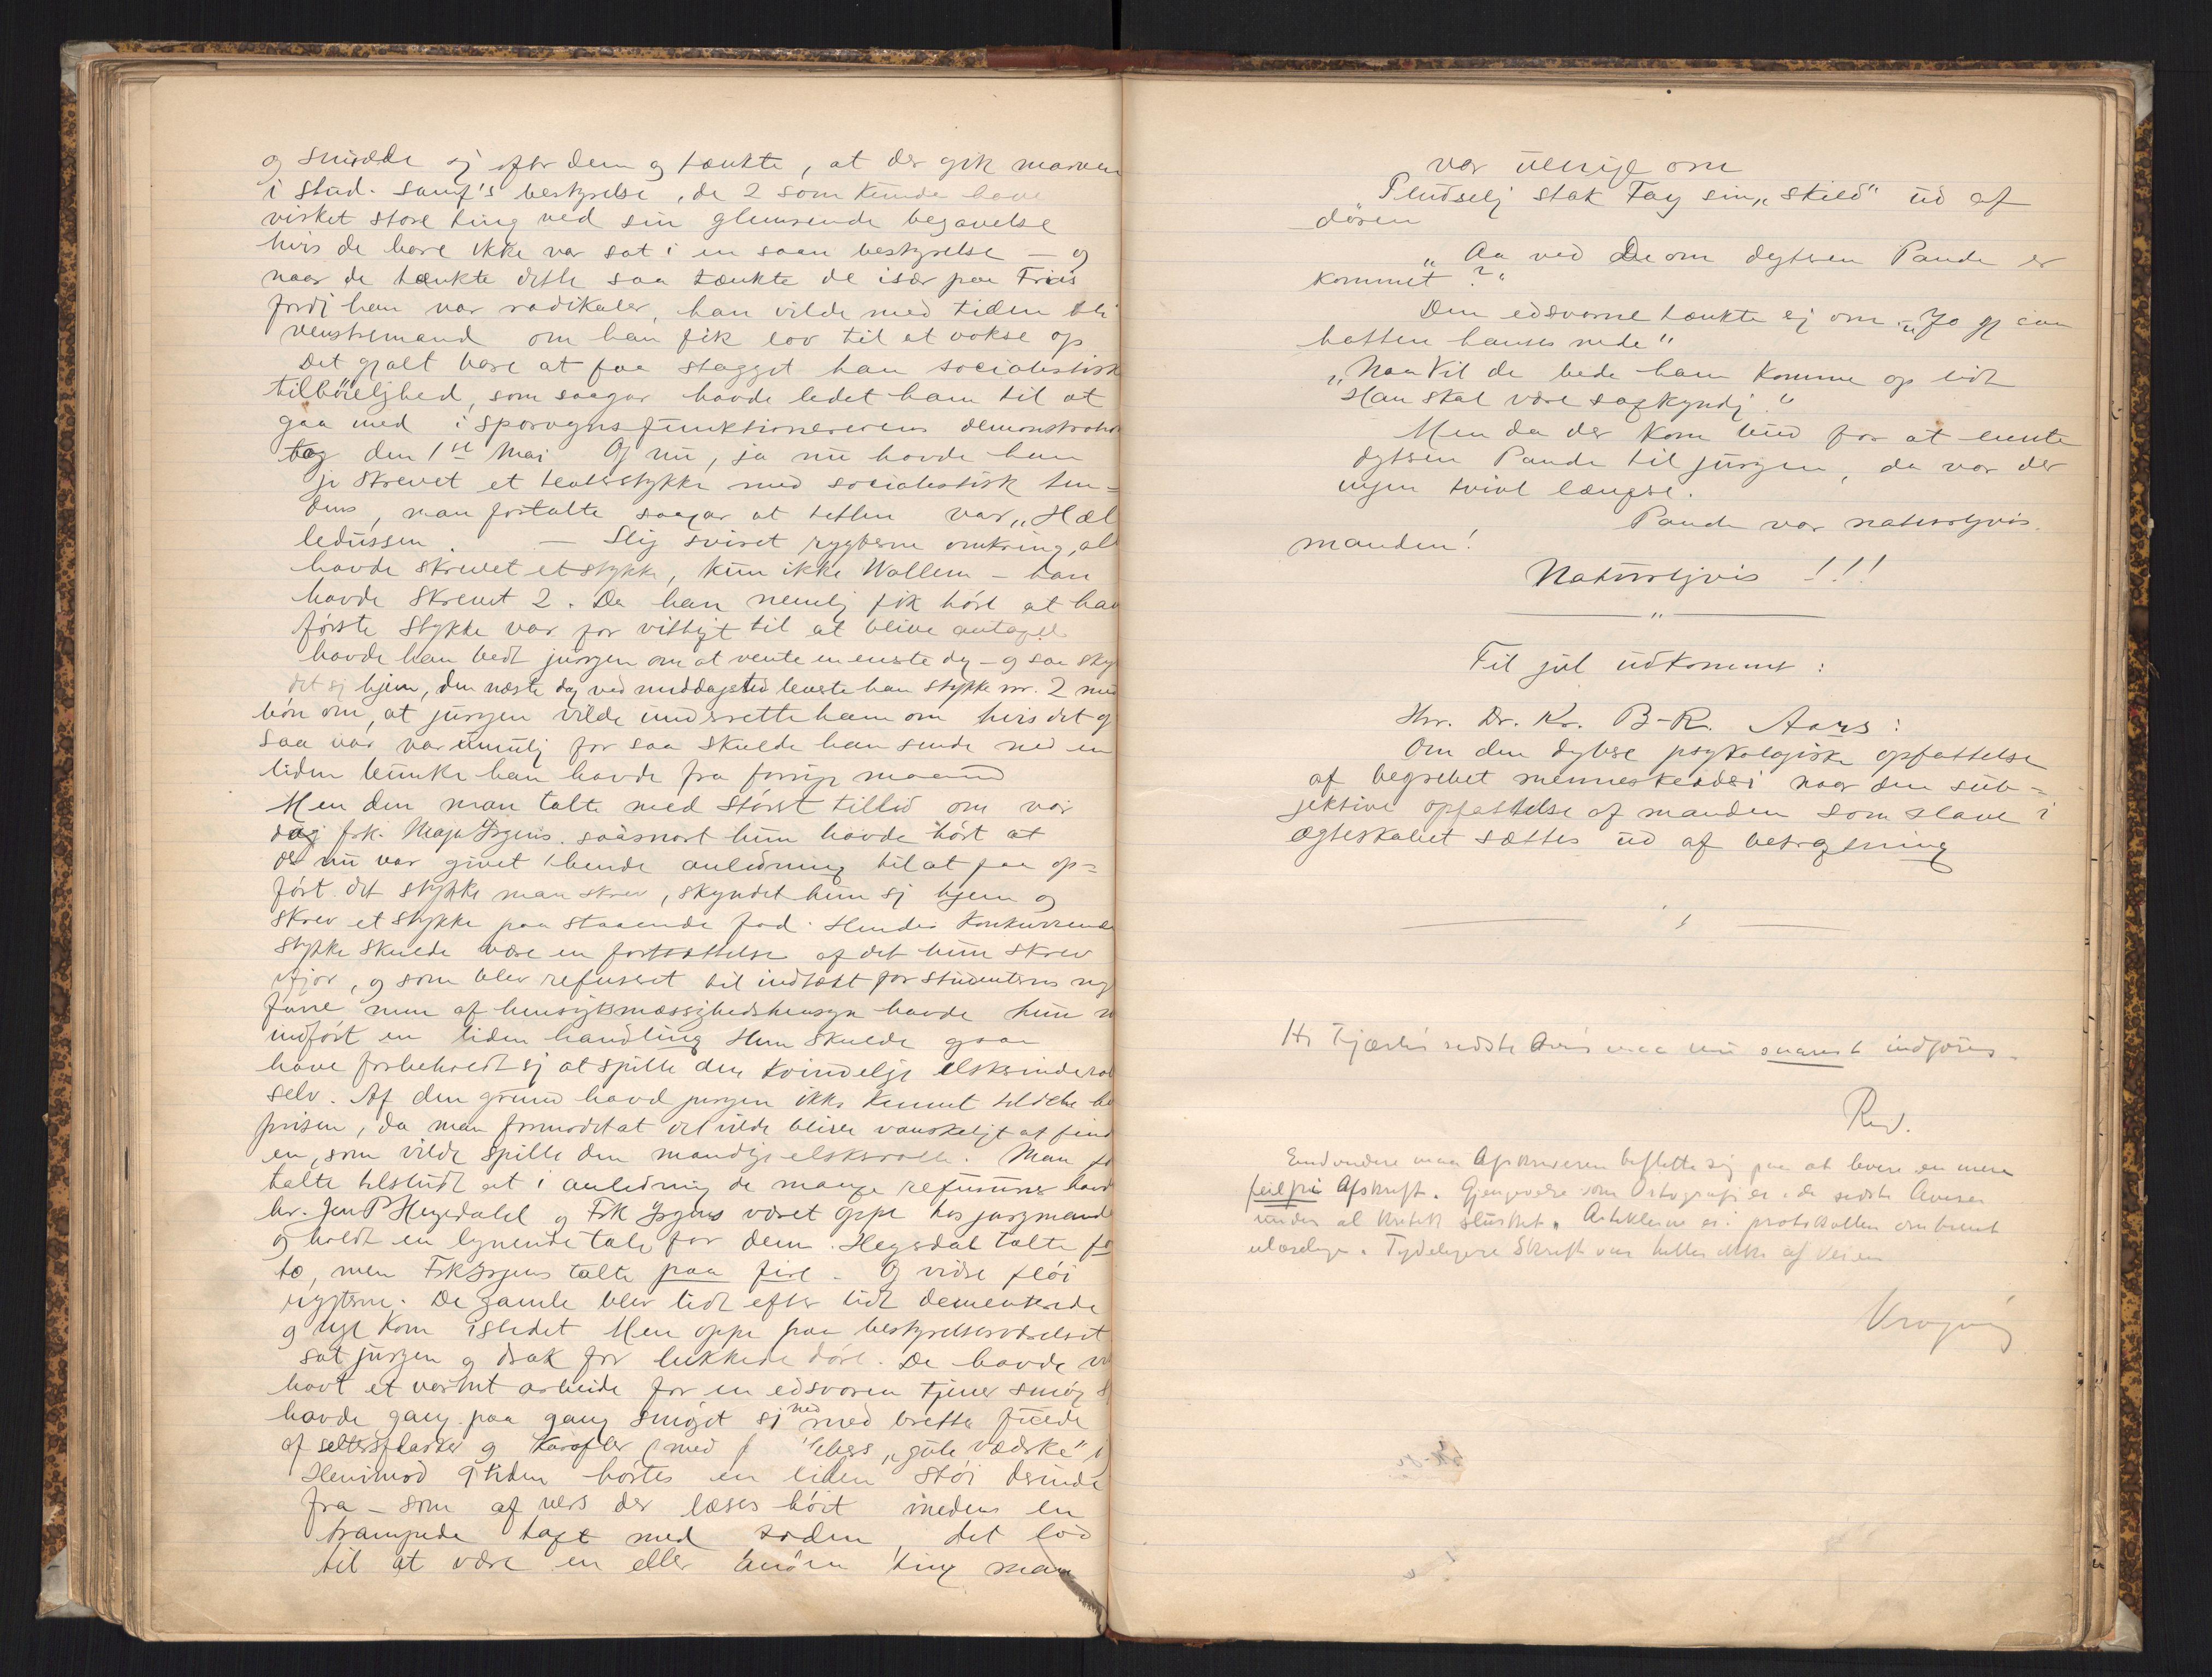 og snudde sj efter dem og tænkte, at der gik marven
i stud. samf's bestyrelse, de 2 som kunde have
virket store ting ved sin glimrende begavelse
hvis de bare ikke var sat i en saan bestyrelse – og
naar de tænkte dette saa tænkte de især paa Friis
fordi han var radikaler, han vilde med tiden bli
venstremand om han fik lov til at vokse op
Det gjalt bare at faa stagget hans socialistisk
tilböieljhed, som saagar havde ledet ham til at
gaa med i sporvognsfunktionærerens demonstrations
tog den 1ste Mai Og nu, ja nu havde han
jo skrevet et teaterstykke med socialistisk ten=
dens, man fortalte saagar at titlen var „Hæl
ledussen. — Slig svirret rygterne omkring, alle
havde skrevet et stykke, kun ikke Wallem – han
havde skrevet 2. Da han nemlig fik hört at hans
förste stykke var for vittigt til at blive antaget
havde han bedt juryen om at vente en eneste dag – og saa skyndte
det sj hjem, den næste dag ved middagstid leverte han stykke nr. 2 med
bön om, at juryen vilde underrette ham om hvis det og
saa var umulig for saa skulde han sende ned en
liden bunke han havde fra forrige maaned
Men den man talte med störst tillid om var
dog frk. Maja Irgens. saasnart hun havde hört at
der nu var givet hende anledning til at faa op=
fört det stykke man skrev, skyndet hun sj hjem og
skrev et stykke paa staaende fod. Hendes Konkurrence
stykke skulde være en fortsættelse af det hun skrev
ifjor, og som blev refuseret til indtækt for studenternes
men af hensigtsmæssighedshensyn havde hun
indfört en liden handling Hun skulde
have forbeholdt sj at spille den kvindelige elskerinderolle
selv. Af den grund havd juryen ikke kunnet tildele hende
prisen, da man formodet at det vilde blive vanskeligt at finde
en, som vilde spille den mandlige elskerrolle. Man for
talte tilslutt at i anledning de mange refusioner havde
hr. Jen P Hegdahl og Frk Irgens været oppe hos jurymændene
og holdt en lynende tale for dem. Hegdal talte for
to, men Frk Irgens talte paa fire. Og videre flöi
rygterne. De gamle blev lidt efter lidt dementerede
og nye kom istedet Men oppe paa bestyrelsesværelset
sat juryen og drak for lukkede döre. De havde
havt et varsomt arbeide for en edsvoren tjener
havde gang paa gang smöget sj ned med brette fulde
af seltersflasker og karafler (med „gule vædske“
Henimod 9 tiden hörtes en liden stöi derinde
fra – som af vers der læses höit medens en
trampede takt med foden, det lod
til at være en eller anden ting man
var uenige om
Pludselj stak Fay sin „skild“ ud af
dören
„Aa ved De om dyteren Pande er
kommet?“
Den edsvorne tænkte sj om „Jo
hatten hanses nede“
„Naa Vil de bede ham komme op lidt
Han skal være sagkyndj.“
Men da der kom bud for at hente
dytren Pande til juryen, da var der
ingen tvivl længre.
Pande var naturligvis
manden!
Naturligvis !!!
Til jul udkommer:
Hr. Dr. Kr. B-R. Aars:
Om den dybere psykologiske opfattelse
af begrebet menneskeværdi naar den sub=
jektive opfattelse af manden som slave i
ægteskabet sættes ud af betragtning
Hr Fjærlis sidste Avis maa nu snarest indföres.
Red.
Endvidere maa Afskriveren beflitte sig paa at levere en mere
feilfri Afskrift. Gjengivelse som Ortografi er i de sidste Aviser
under al kritikk slurvet. Artiklerne er i protokollen omtrent
ulæselige. Tydeligere Skrift var heller ikke af Veien